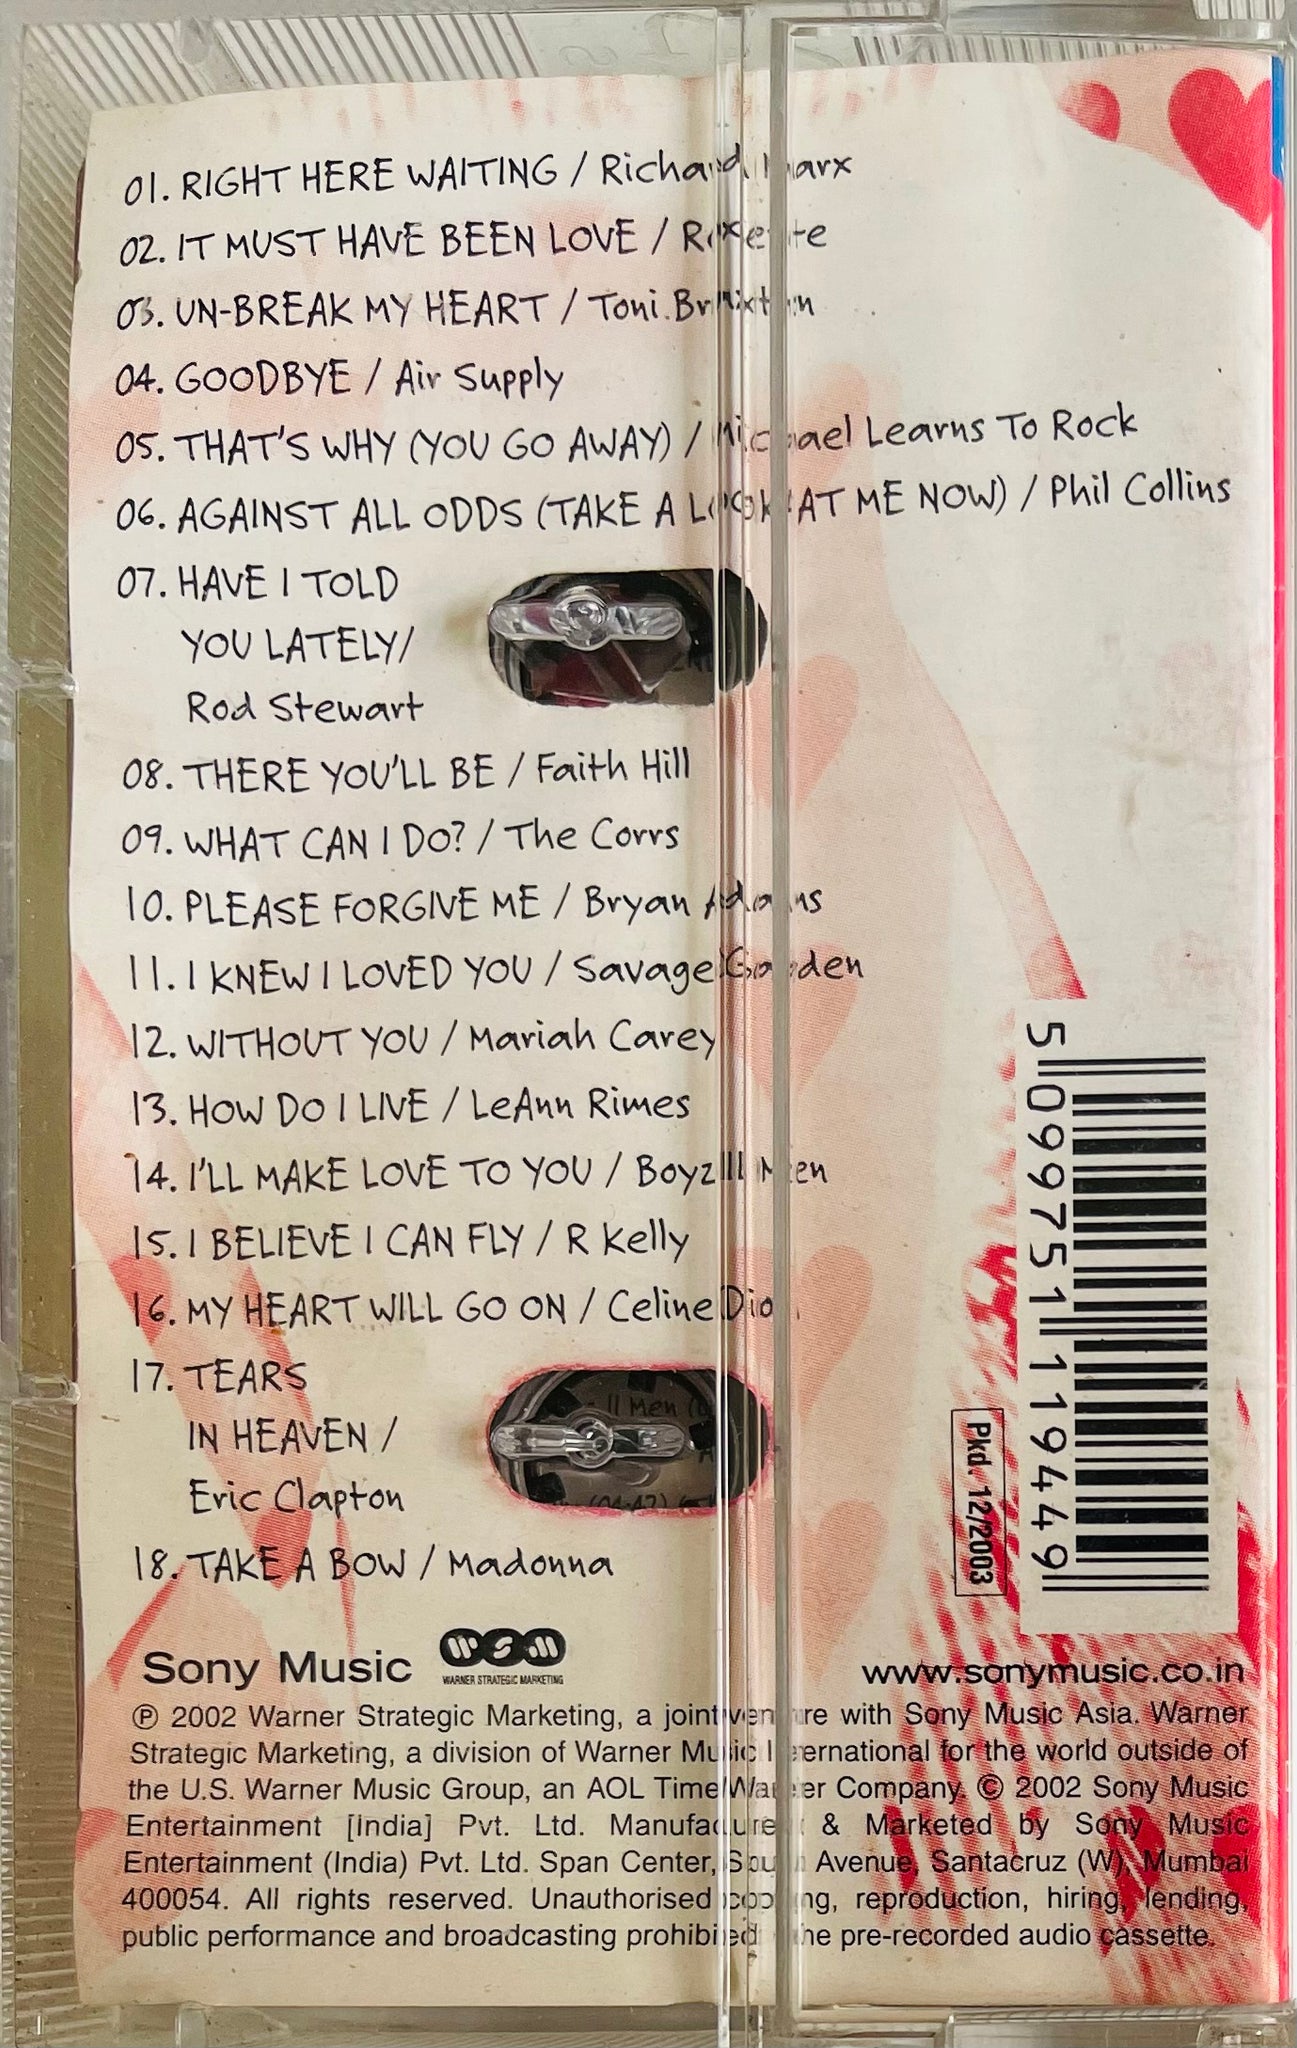 01. RIGHT HERE WAITING / Richard Marx
02. IT MUST HAVE BEEN LOVE / Roxette
03. UN-BREAK MY HEART / Toni Braxton
04. GOODBYE / Air Supply
05. THAT'S WHY (YOU GO AWAY) / Michael Learns To Rock
06. AGAINST ALL ODDS (TAKE A LOOK AT ME NOW) / Phil Collins
07. HAVE I TOLD
YOU LATELY/
Rod Stewart
08. THERE YOU'LL BE / Faith Hill
09. WHAT CAN I DO? / The Corrs
10. PLEASE FORGIVE ME / Bryan Adams
11. I KNEW I LOVED YOU / Savage Garden
12. WITHOUT YOU / Mariah Carey
13. HOW DO I LIVE / LeAnn Rimes
14. I'LL MAKE LOVE TO YOU / Boyz II Men
15. I BELIEVE I CAN FLY / R Kelly
16. MY HEART WILL GO ON / Celine Dion
17. TEARS
IN HEAVEN /
Eric Clapton
II Men
(04:47)
18. TAKE A BOW / Madonna
5 099751 119449
Pkd. 12/2003
Sony Music WSM www.sonymusic.co.in
WARNER STRATEGIC MARKETING
℗ 2002 Warner Strategic Marketing, a joint venture with Sony Music Asia. Warner
Strategic Marketing, a division of Warner Music International for the world outside of
the U.S. Warner Music Group, an AOL Time Warner Company. © 2002 Sony Music
Entertainment [India] Pvt. Ltd. Manufactured & Marketed by Sony Music
Entertainment (India) Pvt. Ltd. Span Center, South Avenue, Santacruz (W), Mumbai
400054. All rights reserved. Unauthorised copying, reproduction, hiring, lending,
public performance and broadcasting prohibited the pre-recorded audio cassette.